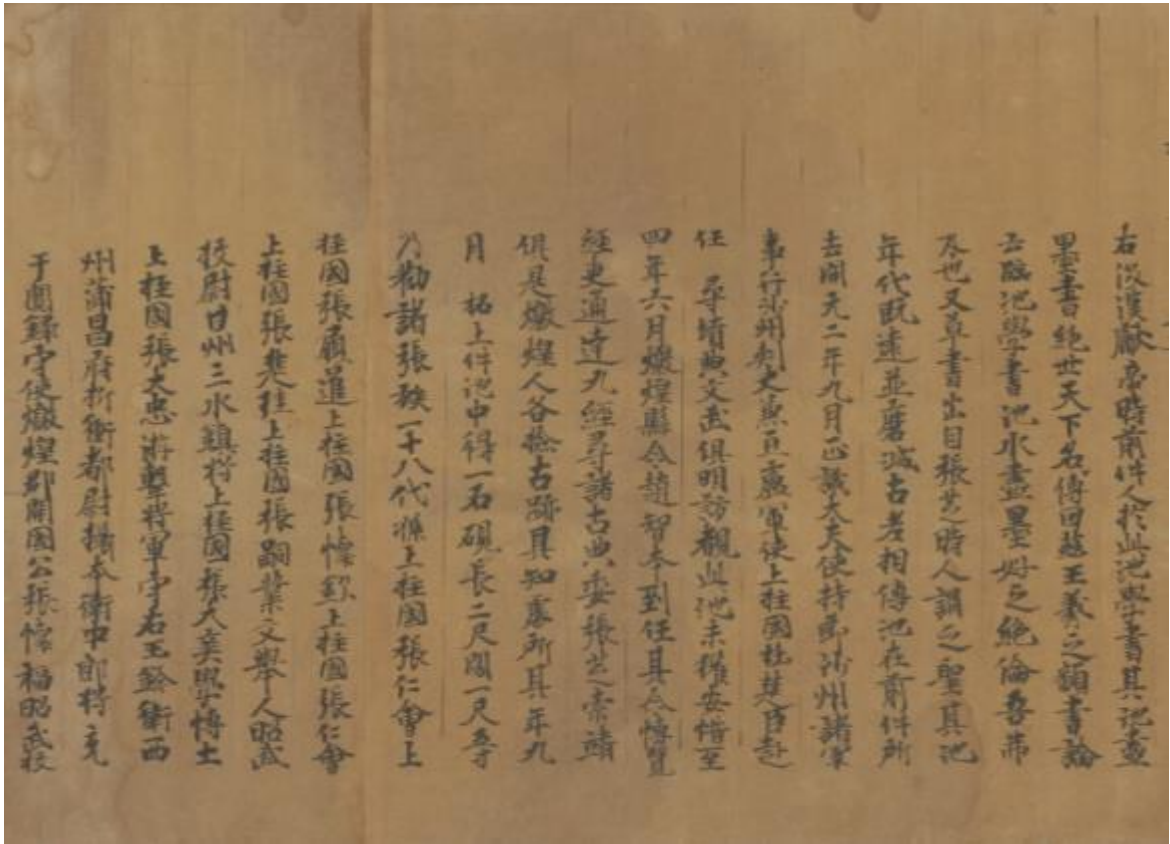 右後漢獻帝時前件人於此池學書其池盡
墨書絕世天下名傳因茲王羲之頿書論
云臨池學書池水盡墨好之絕倫吾弗
及也又草書出自張芝時人謂之聖其池
年代既遠並磨滅古老相傳池在前件所
去開元二年九月正議大夫使持節沙州諸軍
事行沙州刺史兼豆盧軍使上柱國杜楚臣赴
任 尋墳典文武俱明訪覩此池未獲安惜至
四年六月燉煌縣令趙智本到任其令博覽
經史通達九經尋諸古典委張芝索靖
俱是燉煌人各撿古跡具知處所其年九
月 拓上件池中得一石硯長二尺闊一尺五寸
乃勸諸張族一十八代孫上柱國張仁會上
柱國張履暹上柱國張懷欽上柱國張仁會
上柱國張楚珪上柱國張嗣業文舉人昭武
校尉甘州三水鎮將上柱國張大爽學博士
上柱國張大忠游擊將軍守右玉鈐衛西
州蒲昌府折衝都尉攝本衛中郎將充
于闐錄守使燉煌郡開國公張懷福昭武校